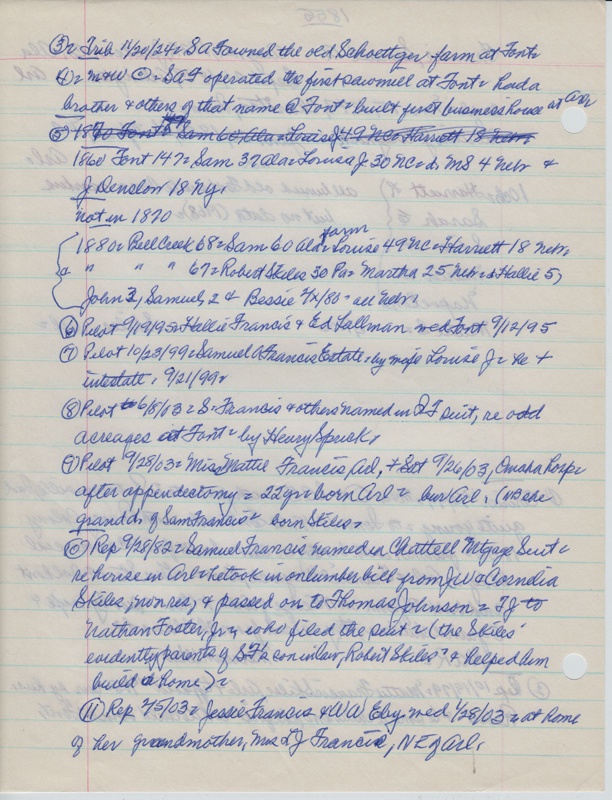 1855
③ = Trib 11/20/24 = SA F owned the old Schoettger farm at Font =
④ = M&W © = SAF operated the first sawmill at Font = had a
brother & others of that name @ Font = built first business house at Arl
⑤ 1870 Font 67 = Sam 60 Ala = Louisa J 49 NC = Harriett 18 Nebr
1860 Font 147 = Sam 37 ala = Louisa J. 30 NC = d. MS 4 Nebr &
J Denslow 18 NY.
not in 1870
farm
1880 = Bell Creek 68 = Sam 60 Ala = Louise 49 NC = Harriett 18 Nebr =
a " " " 67 = Robert Skiles 30 Pa = Martha 25 Nebr = d Hallie 5,
John 3, Samuel, 2 & Bessie 4/x/80 = all Nebr.
⑥ Pilot 9/19/95 = Hallie Francis & Ed Lallman med Font 9/12/95
⑦ Pilot 10/23/99 = Samuel A Francis Estate = by wife Louise J = he +
intestate, 9/21/99 =
⑧ Pilot 6/8/03 = S. Francis & others named in Q T suit, re odd
acreages at Font = by Henry Sprick,
⑨ Pilot 9/28/03 = Miss Mattie Francis, Arl, + Sat 9/26/03, Omaha Hosp =
after appendectomy = 22 yr = born Arl = bur Arl. (NB she
grand d. of Sam Francis = born Skiles =
⑩ Rep 9/28/82 = Samuel Francis named in Chattell Mtgage Suit =
re house in Arl = he took in on lumber bill from JW & Cornelia
Skiles, nonres, & passed on to Thomas Johnson = TJ to
Nathan Foster, Jr., who filed the suit = (the Skiles'
evidently parents of SF's son in law, Robert Skiles = & helped him
build a home) =
⑪ Rep 2/5/03 = Jessie Francis & WW Eby, med 1/28/03 = at home
of her grandmother, Mrs LJ Francis, NE of Arl.